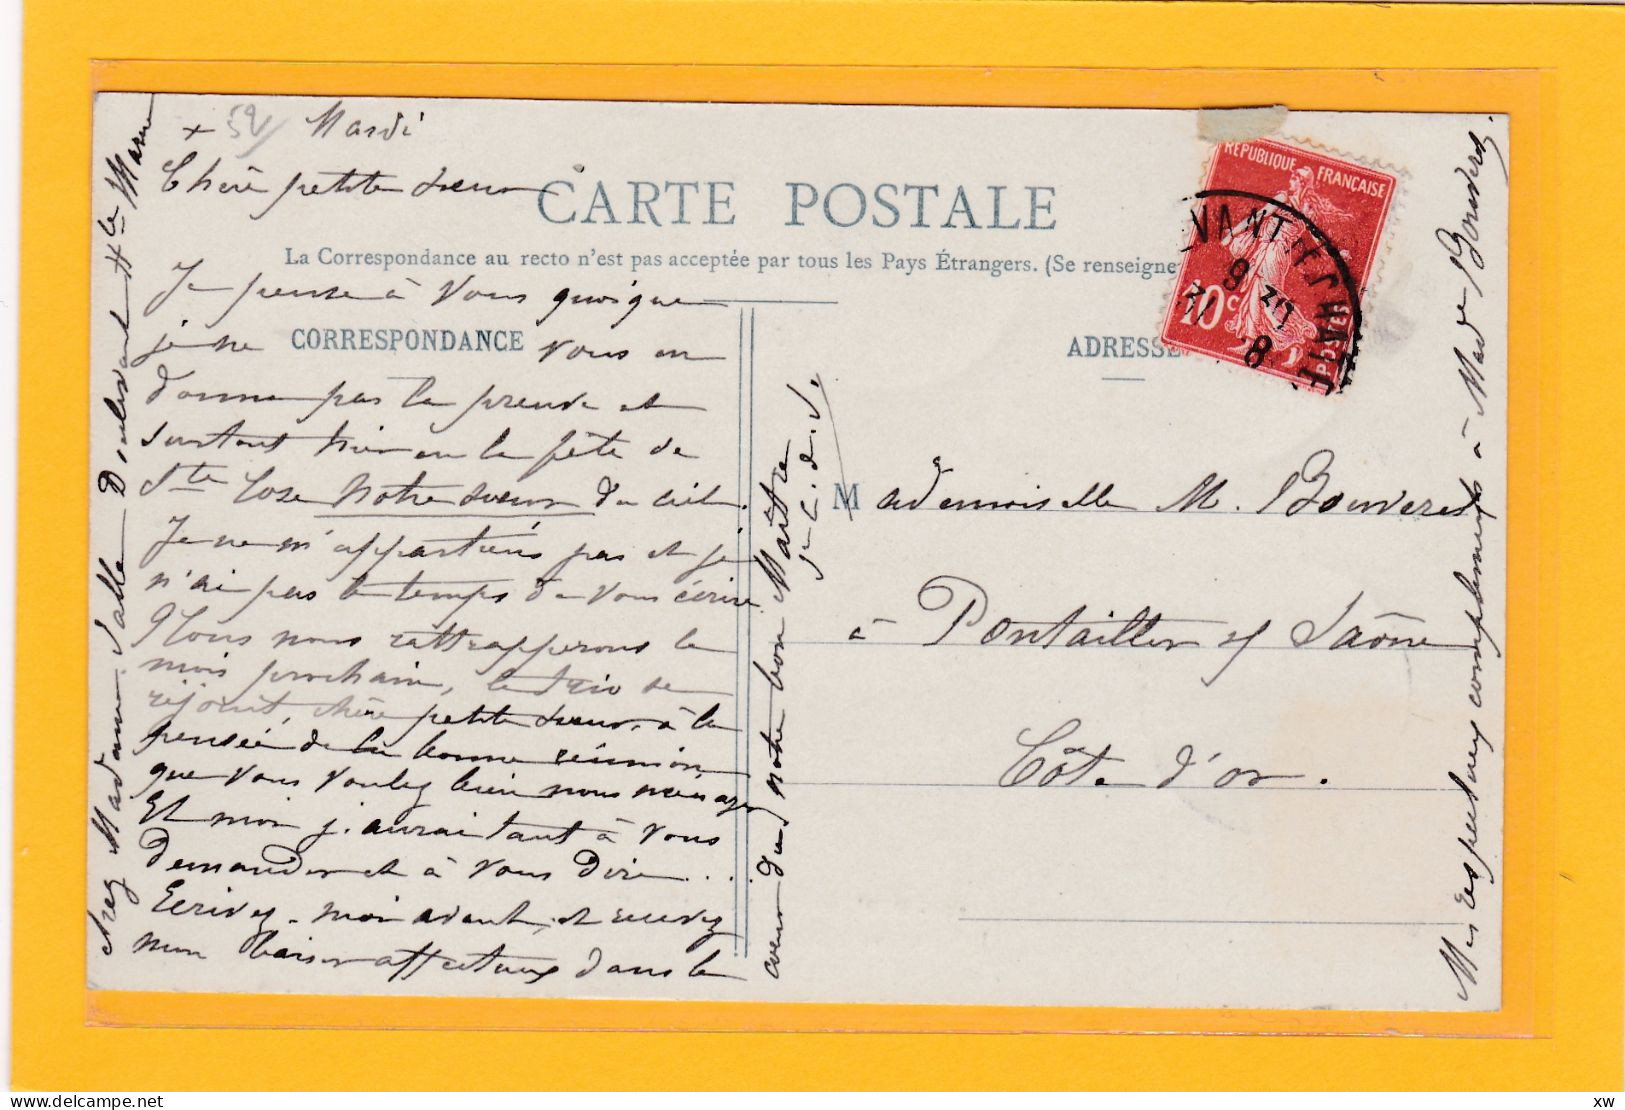 + 52/ Mardi
Chère petite sœur
CARTE POSTALE
La Correspondance au recto n'est pas acceptée par tous les Pays Étrangers. (Se renseigne
CORRESPONDANCE
ADRESSE
RÉPUBLIQUE FRANÇAISE
10c
POSTES
Je pense à vous quoique
je ne vous en
donne pas la preuve et
surtout hier en la fête de
Ste Rose notre sœur du ciel.
Je ne m'appartiens pas et je
n'ai pas le temps de vous écrire.
Nous nous rattrapperons le
mois prochain, le trio se
réjouit, chère petite sœur, à la
pensée de la bonne réunion
que vous voulez bien nous ménager
Et moi j'aurai tant à vous
demander et à vous dire...
Ecrivez-moi avant, et recevez
mon baiser affectueux dans le
cœur du notre bon Maître
chez Madame Salle Doulevant Hte Marne
Mademoiselle M. Bouveret
à Pontailler s/ Saône
Côte d'Or.
Mes respectueux compliments à Mad de Bouveret.